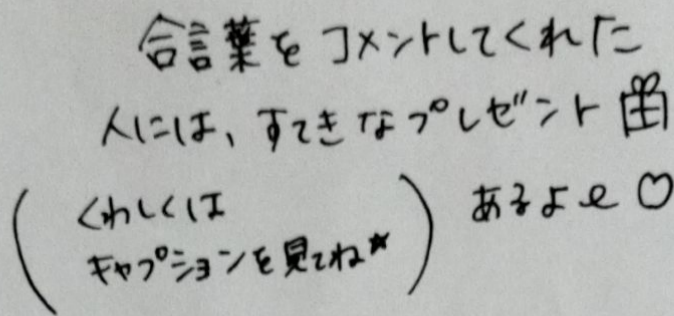 合言葉をコメントしてくれた
人には、すてきなプレゼント🎁
あるよ♡
(くわしくは
キャプションを見てね★)